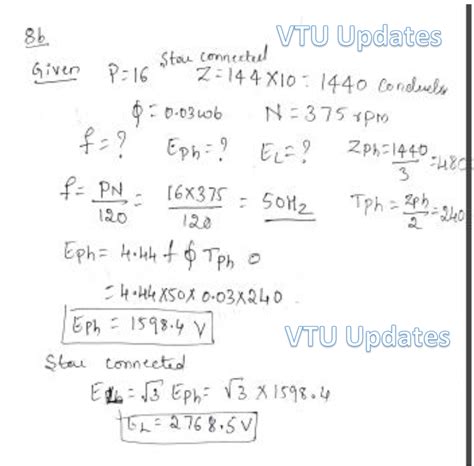 8b
VTU Updates
Given P=16 Star connected Z=144×10=1440 conductors
ϕ=0.03wb N=375rpm
f=? Eph=? EL=? Zph=1440/3=480
f=PN/120=16×375/120=50Hz Tph=Zph/2=240
Eph=4.44 f ϕ Tph
=4.44×50×0.03×240
Eph=1598.4 V
VTU Updates
Star connected
=√3 Eph=√3×1598.4
EL=2768.5V